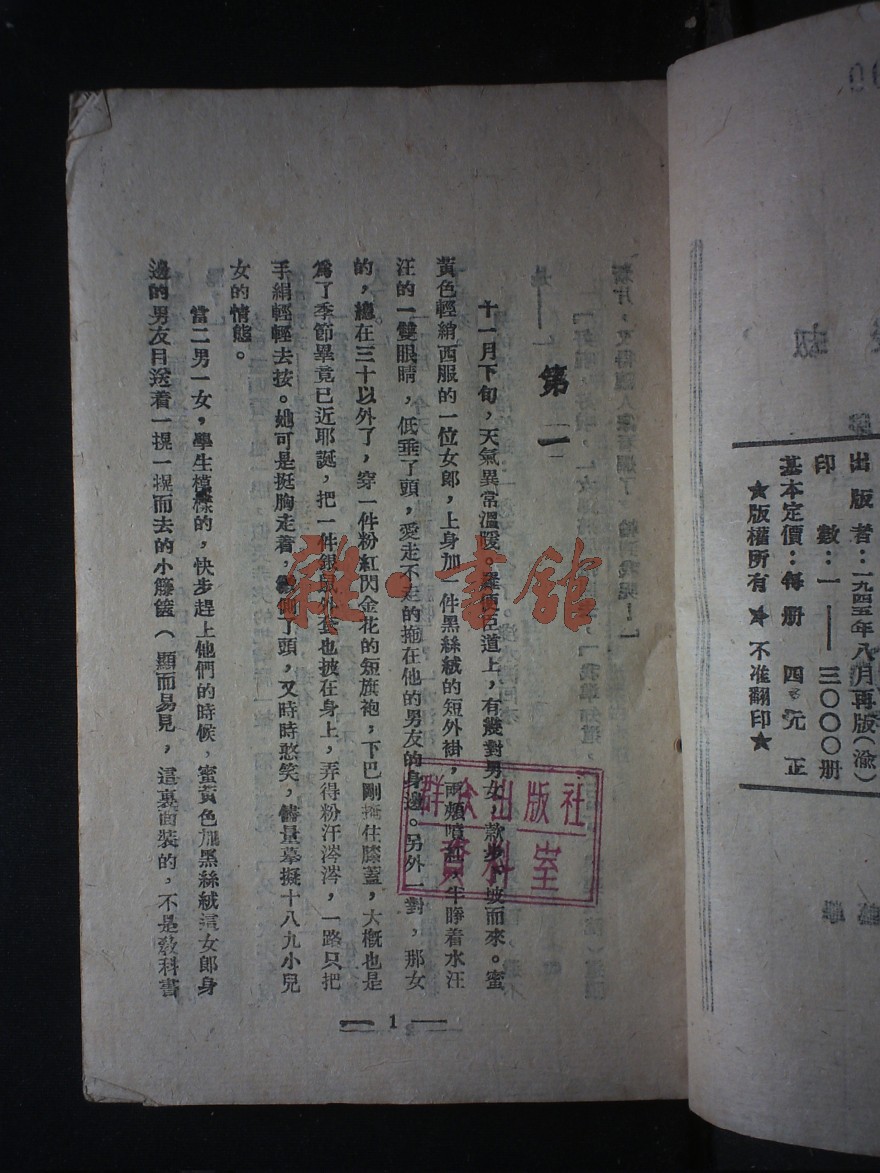 出版者：一九四五年八月再版（渝）
印　數：一——三〇〇〇册
基本定價：每册　四元正
★版權所有★不准翻印★
第一
十一月下旬，天氣異常溫暖。羅便臣道上，有幾對男女，款步　坡而來。蜜
黃色輕綃西服的一位女郎，上身加一件黑絲絨的短外褂，兩頰噴紅，半睜着水汪
汪的一雙眼睛，低垂了頭，愛走不走的拖在他的男友的身邊。另外一對，那女
的，總在三十以外了，穿一件粉紅閃金花的短旗袍，下巴剛掩住膝蓋，大概也是
爲了季節畢竟已近耶誕，把一件銀鼠外套也披在身上，弄得粉汗涔涔，一路只把
手絹輕輕去按。她可是挺胸走着，　側了頭，又時時憨笑，儘量摹擬十八九小兒
女的情態。
當二男一女，學生模樣的，快步趕上他們的時候，蜜黃色加黑絲絨這女郎身
邊的男友目送着一提一提而去的小籐篋（顯而易見，這裏面裝的，不是敎科書
1
雜·書館
群众出版社
資料室